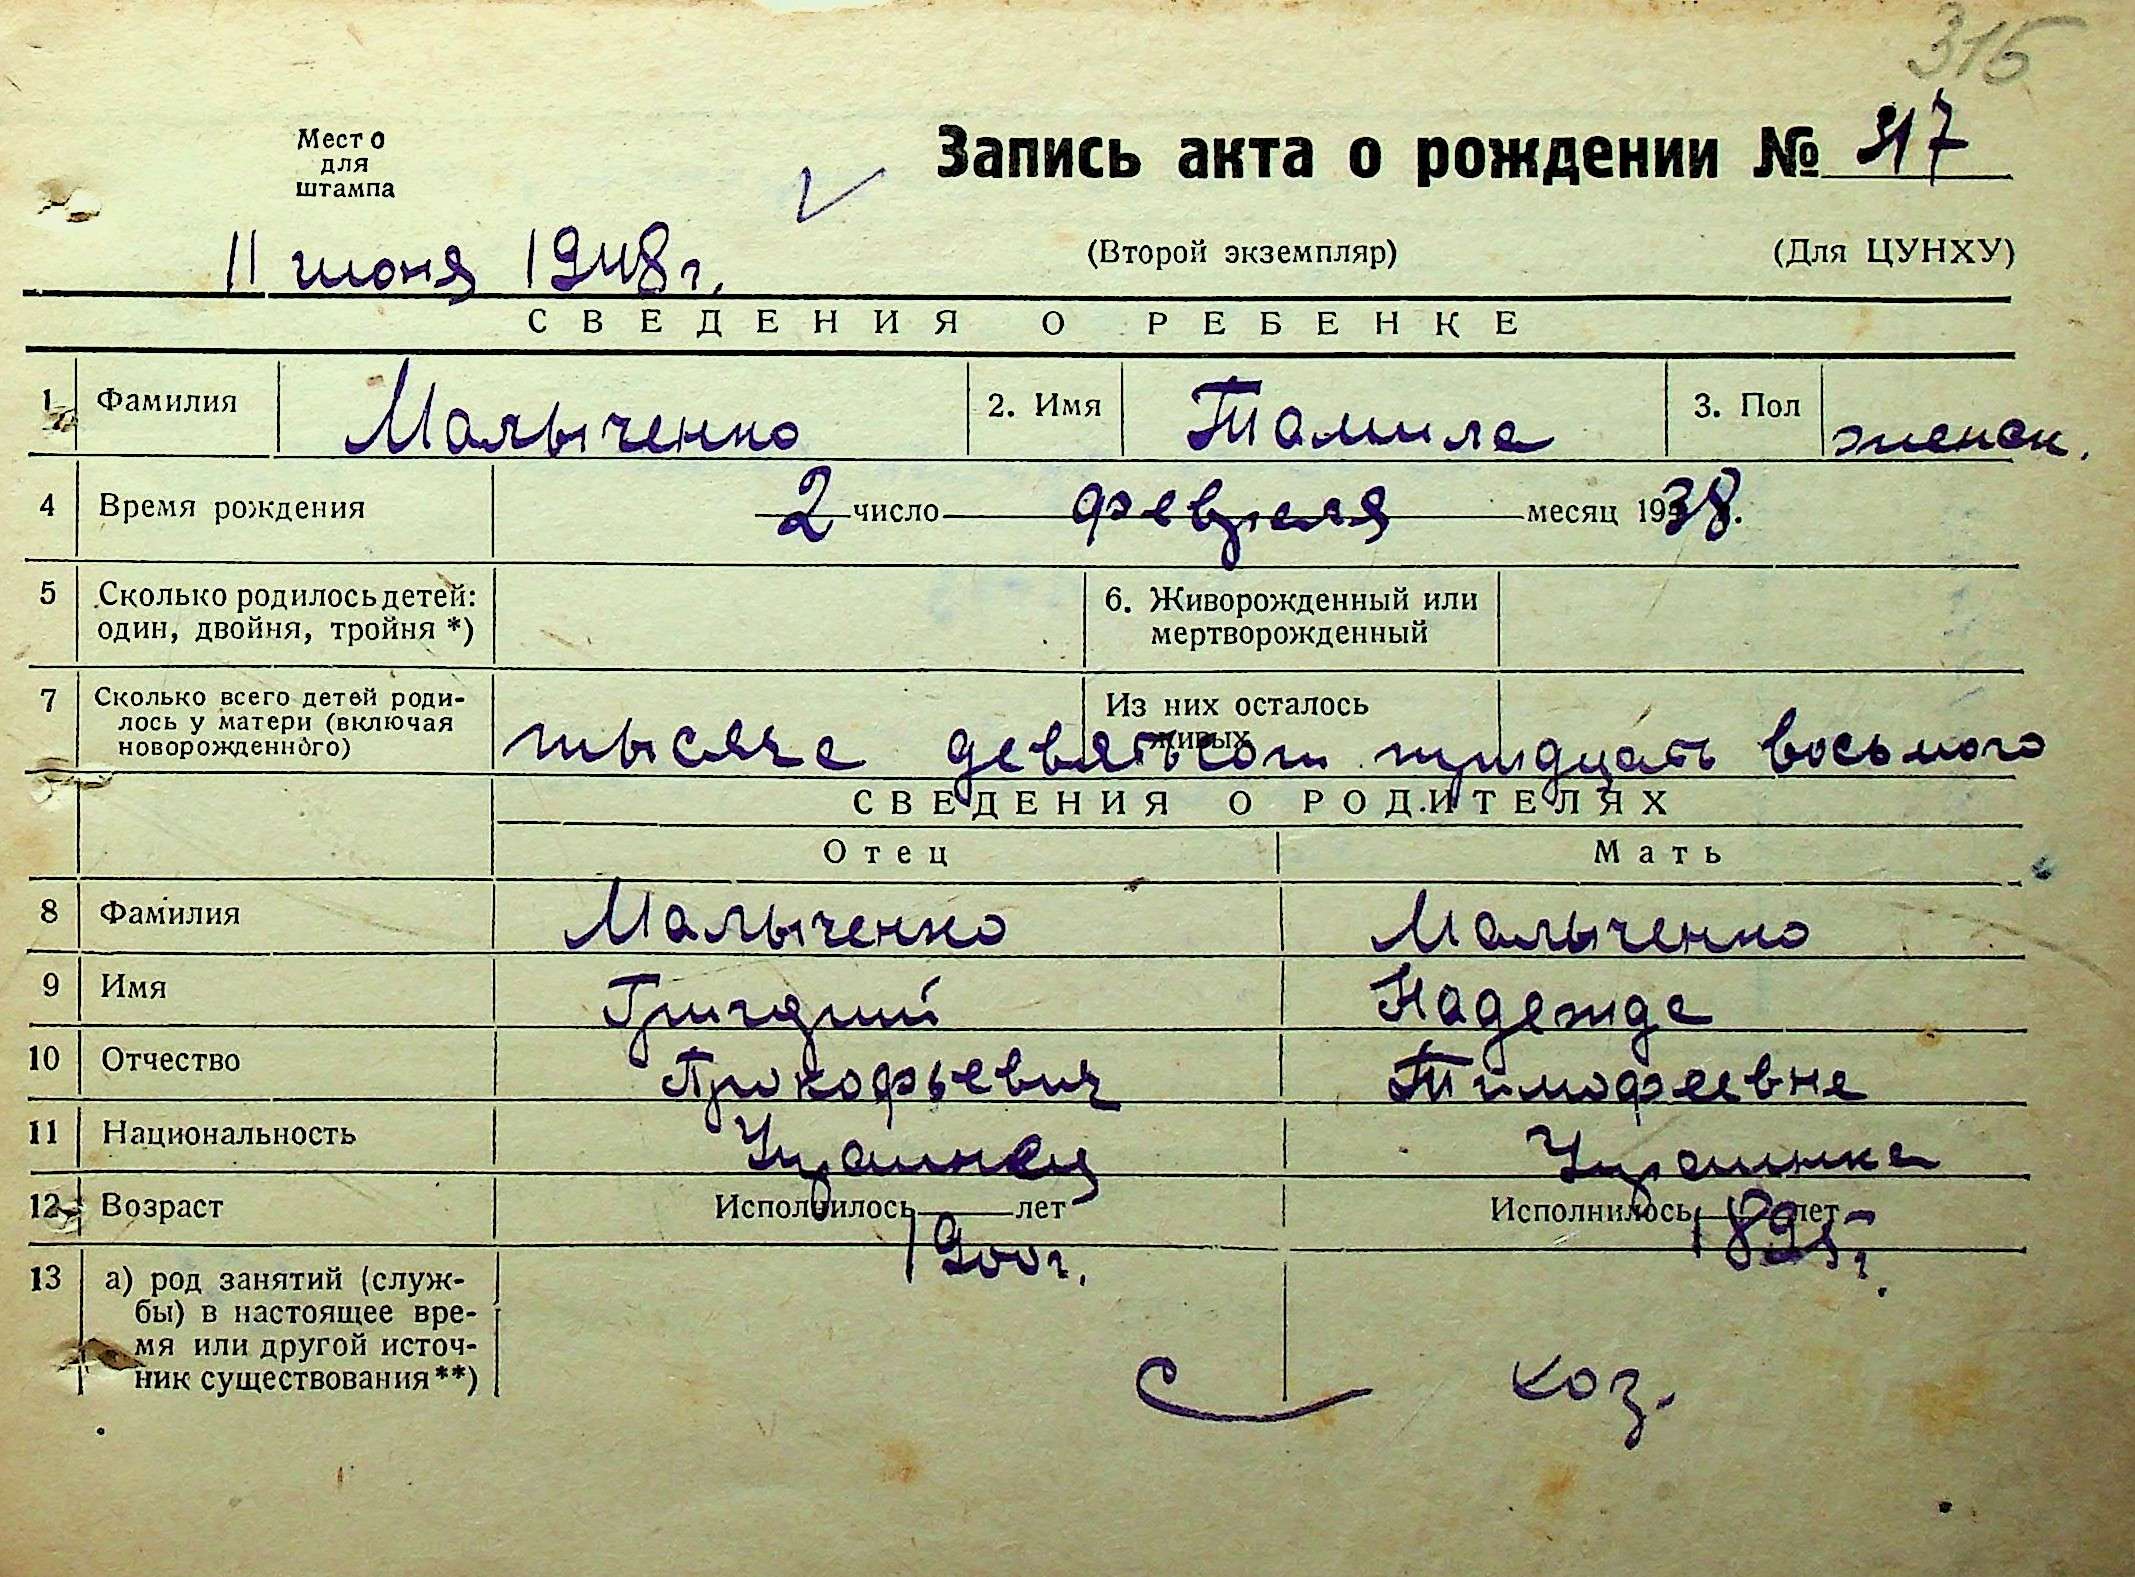 315
Место
для
штампа
Запись акта о рождении № 317
11 июня 1948 г.
(Второй экземпляр) (Для ЦУНХУ)
СВЕДЕНИЯ О РЕБЕНКЕ
1 Фамилия Малыченко 2. Имя Тамила 3. Пол женск.
4 Время рождения 2 число февраля месяц 1938.
5 Сколько родилось детей: один, двойня, тройня *) 6. Живорожденный или мертворожденный
7 Сколько всего детей родилось у матери (включая новорожденного) Из них осталось живых
тысяча девятьсот тридцать восьмого
СВЕДЕНИЯ О РОДИТЕЛЯХ
Отец Мать
8 Фамилия Малыченко Малыченко
9 Имя Григорий Надежда
10 Отчество Прокофьевич Тимофеевна
11 Национальность Украинец Украинка
12 Возраст Исполнилось лет Исполнилось лет
1900 г.
13 а) род занятий (служ-
бы) в настоящее вре-
мя или другой источ-
ник существования **)
коз.